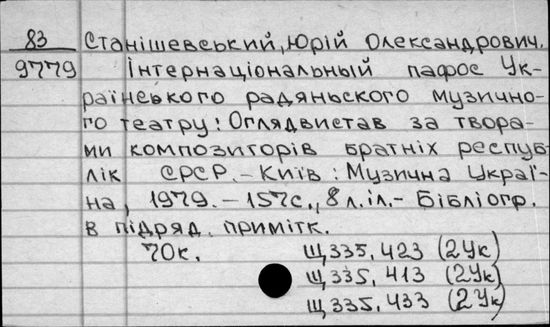 83 Станішевський, Юрій Олександрович.
9779 Інтернаціональный пафос Ук-
раїнського радяньского музично-
го театру: Оглядвистав за твора-
ми композиторів братніх респуб-
лік СРСР. - Київ: Музична Украї-
на, 1979. - 157с., 8 л. іл. - Бібліогр.
в підряд. примітк.
70к. Щ335.423 (2Ук)
Щ335.413 (2Ук)
Щ335.433 (2Ук)